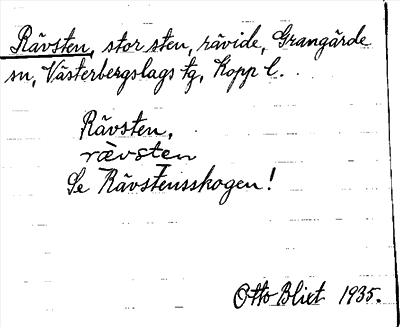 Rävsten, stor sten, rävide, Grangärde
sn, Västerbergslags tg, Kopp l.
Rävsten,
rævsten
Se Rävstensskogen!
Otto Blixt 1935.